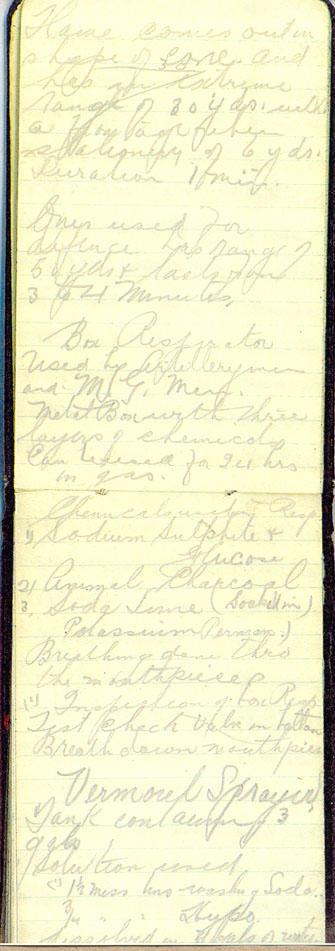 Flame comes out in
shape of cone and
has an extreme
range of 30 yds. with
a frontage when
stationery of 6 yds.
Duration 1 min.
Ones used for
defence has range of
50 yds & lasts from
3 to 4 Minutes.
Box Respirator
Used by Artillerymen
and M. G. Men.
Metal Box with three
layers of chemicals
Can be used for 24 hrs
in gas.
Chemicals used in Resp
1) Sodium Sulphite &
Glucose
2) Animal Charcoal
3. Soda Lime (Soaked in)
Potassium Perman.)
Breathing done thro
the mouthpiece
(1) Inspection of Box Resp
Test check Valve on bottom
Breath down mouthpiece
Vermorel Sprayer
Tank containing 3
gals
Solution used
(1) washing Soda
Hypo.
dissolved in of water